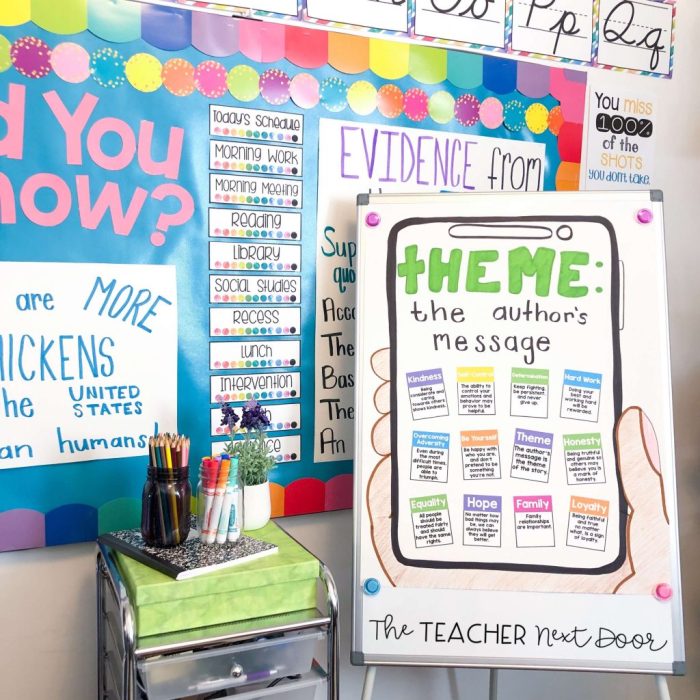 Pp
Qq
d You
now?
are MORE
HICKENS
he UNITED
STATES
an humans!
Today's Schedule
Morning Work
Morning Meeting
Reading
Library
Social Studies
Recess
Lunch
Intervention
EVIDENCE from
Sup
quo
Acco
The
Bas
The
An
You miss
100%
of the
SHOTS
you don't take.
THEME:
the author's
message
Kindness
Being
considerate and
caring
towards others
shows kindness.
Self-Control
The ability to
control your
emotions and
behavior may
prove to be
helpful.
Determination
Keep fighting,
be persistent
and never
give up.
Hard Work
Doing your
best and
working hard
will be
rewarded.
Overcoming
Adversity
Even during
the most
difficult times,
people are
able to
triumph.
Be Yourself
Be happy with
who you are,
and don't
pretend to be
something
you're not.
Theme
The author's
message is
the theme
of the story.
Honesty
Being truthful
and genuine so
others may
believe you is
a mark of
honesty.
Equality
All people
should be
treated fairly
and should
have the same
rights.
Hope
No matter how
bad things may
be, we can
always believe
they will get
better.
Family
Family
relationships
are important.
Loyalty
Being faithful
and true
no matter
what, is a sign
of loyalty.
The TEACHER Next Door